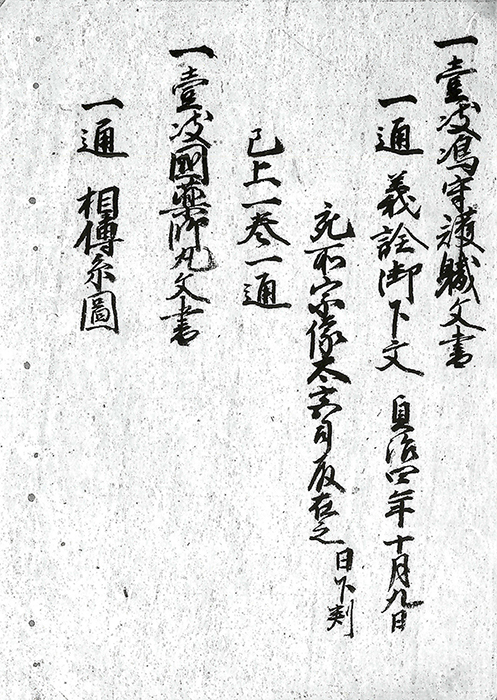 一壹岐嶋守護職文書
一通 義詮御下文 貞治四年十月九日
充所宗像太宮司殿在之 日下判
已上一巻一通
一壹岐國薬師丸文書
一通 相傳系圖